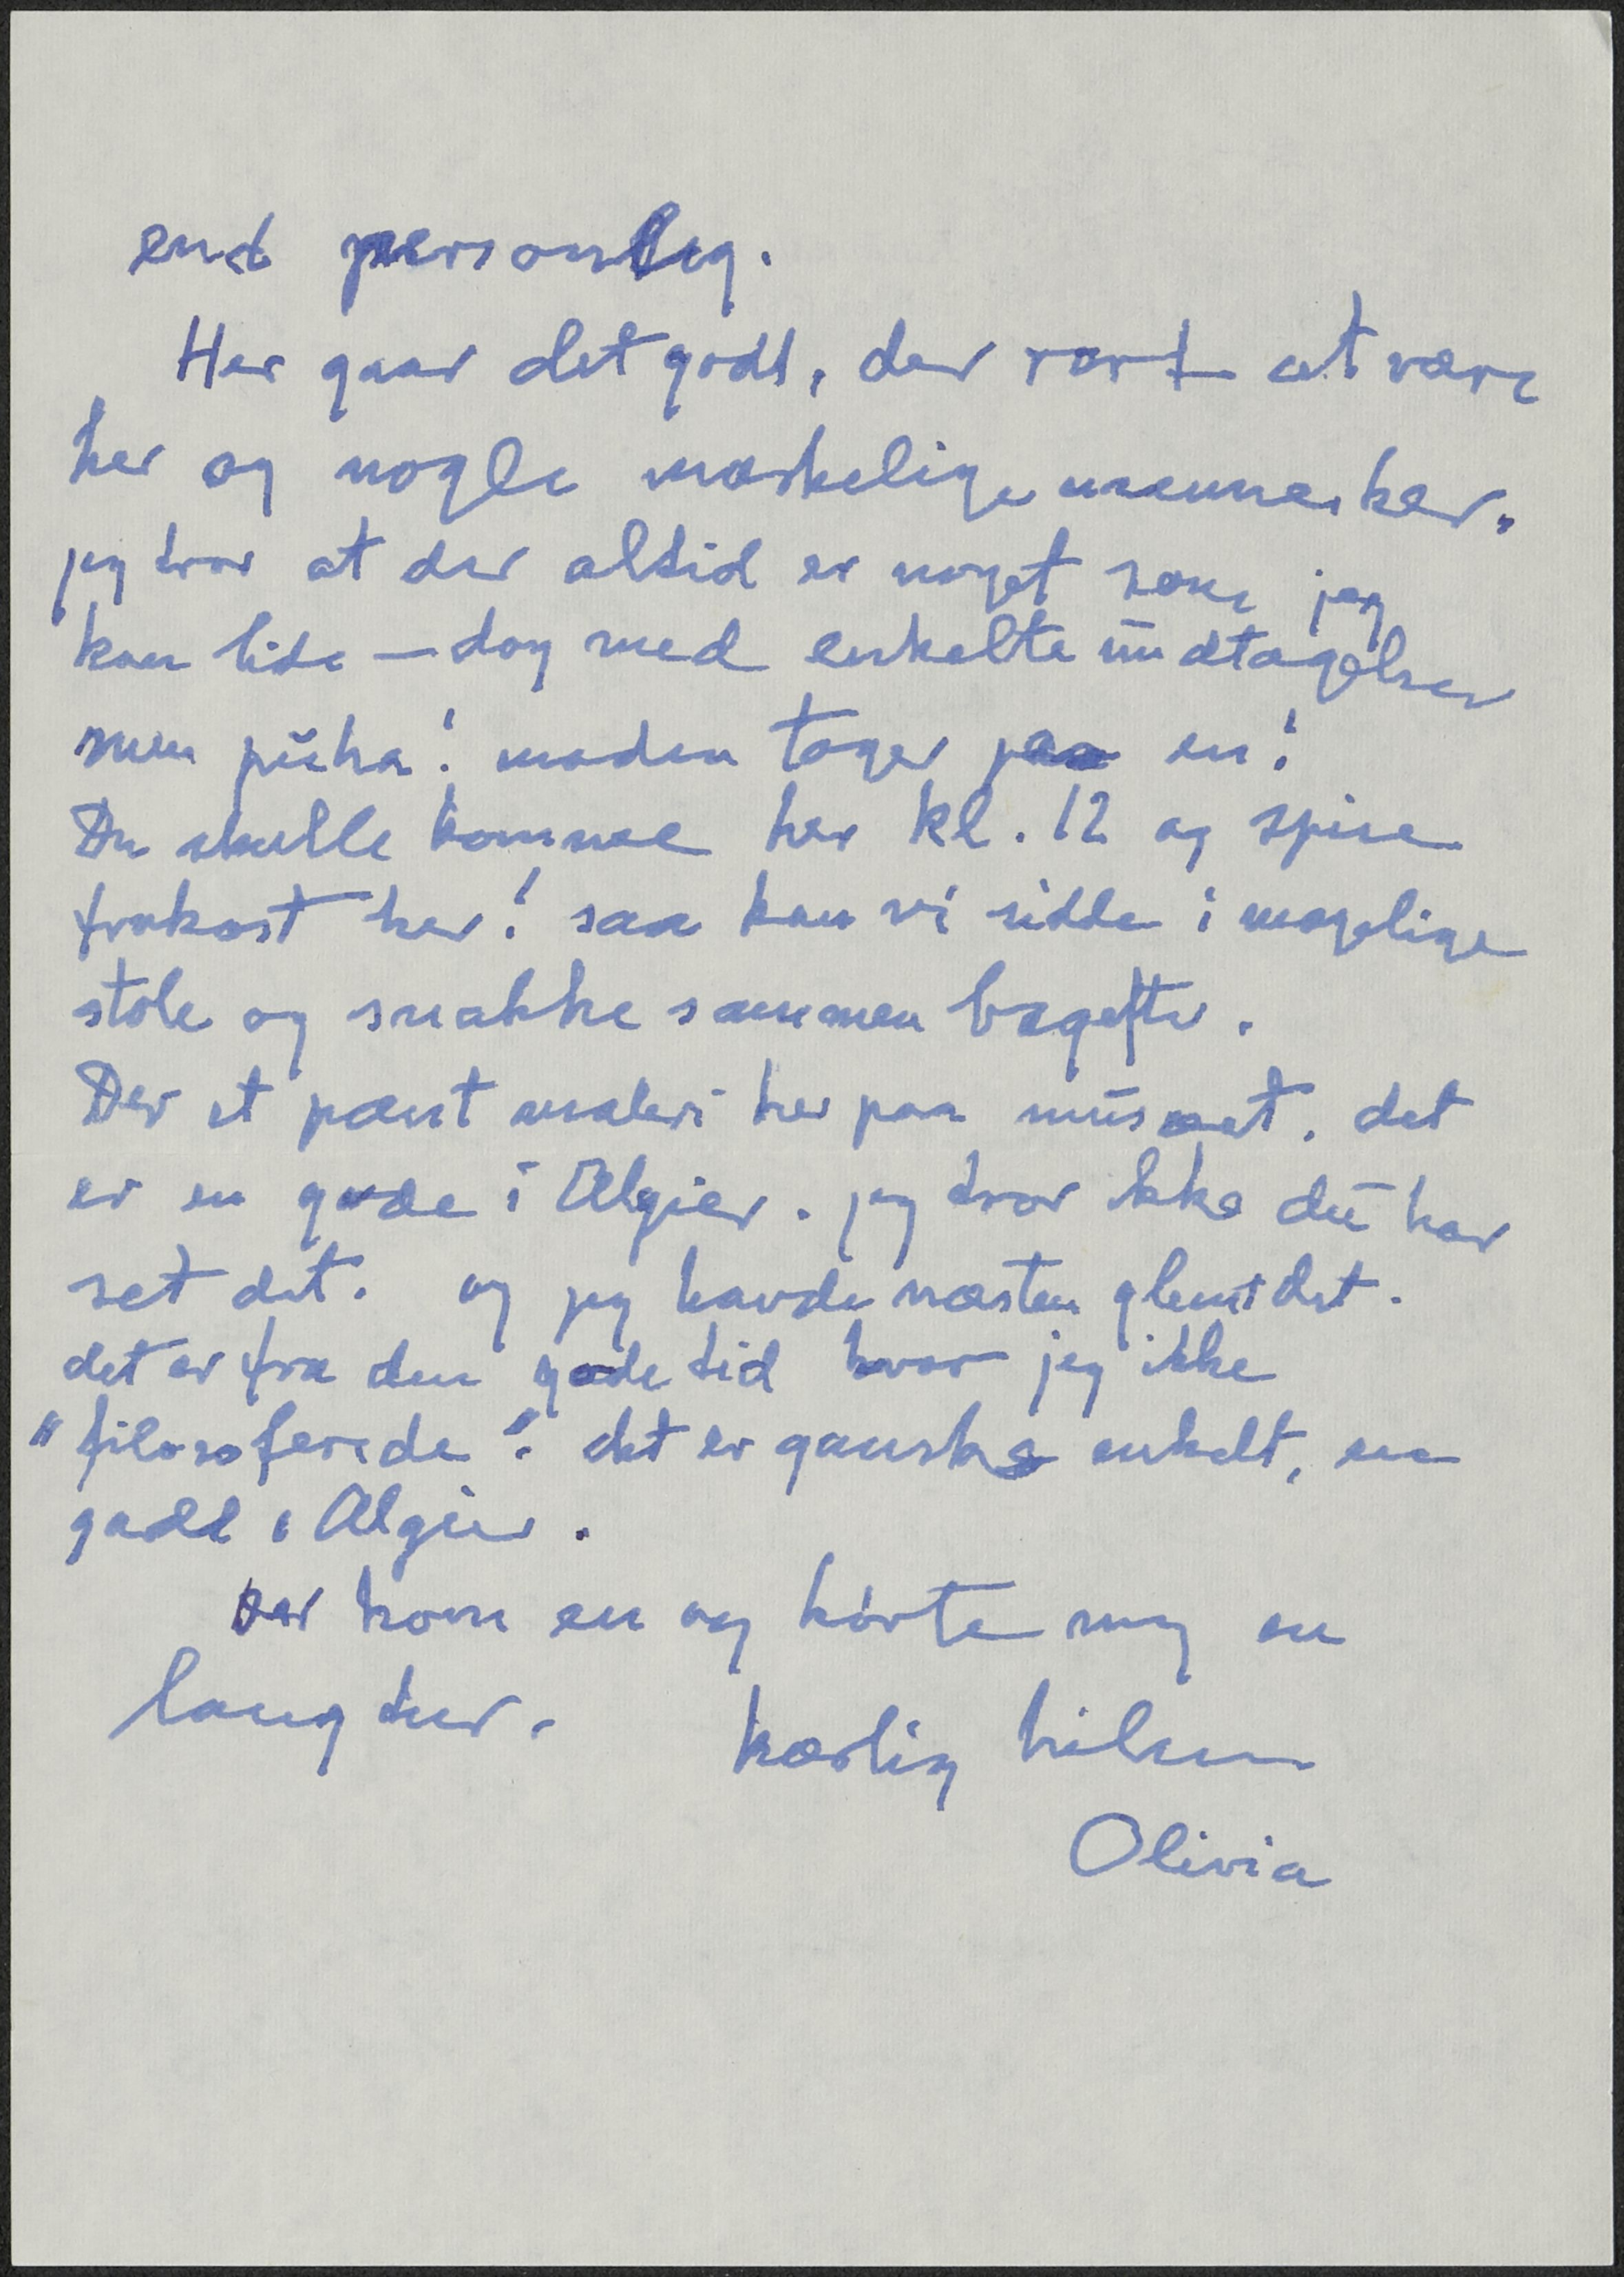 end personlig.
Her gaar det godt, der rart at være
her og nogle mærkelige mennesker.
jeg tror at der altid er noget som jeg
kan lide — dog med enkelte undtagelser
men puha! maden tager paa en!
Du skulle komme her kl. 12 og spise
frokost her! saa kan vi sidde i magelige
stole og snakke sammen bagefter.
Der et pænt maleri her paa museet. det
er en gade i Algier. jeg tror ikke du har
set det. og jeg havde næsten glemt det.
det er fra den gode tid hvor jeg ikke
"filosoferede". det er ganske enkelt, en
gade i Algier.
Der kom en og kørte mig en
lang tur.
kærlig hilsen
Olivia